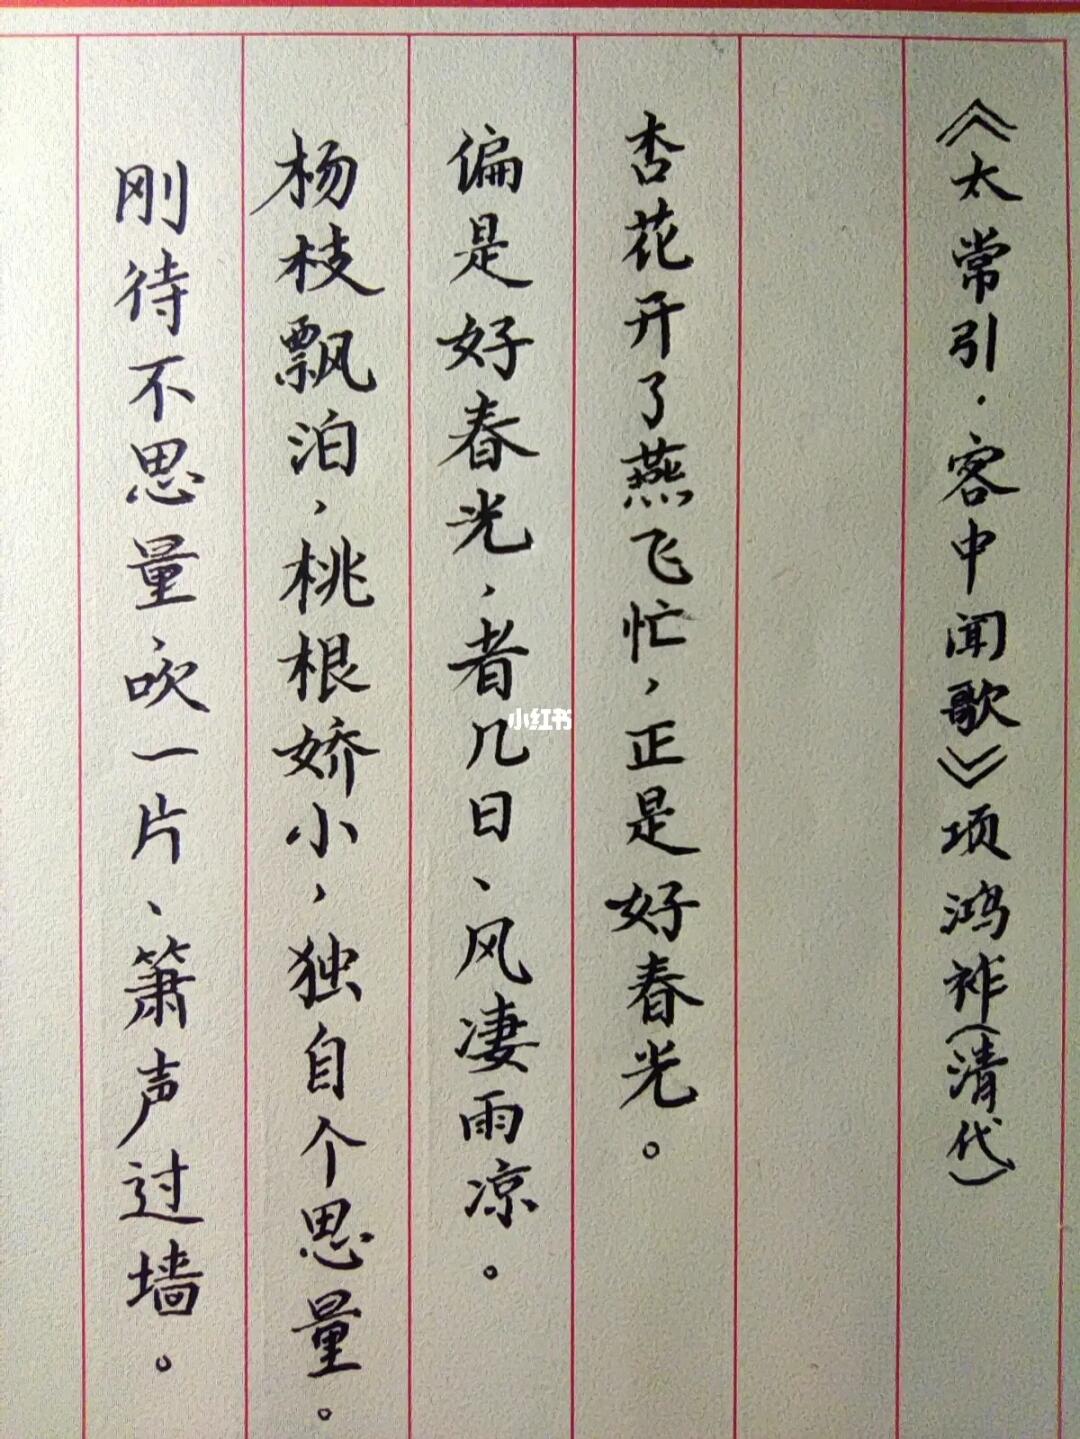 《太常引·客中闻歌》项鸿祚（清代）
杏花开了燕飞忙，正是好春光。
偏是好春光，者几日、风凄雨凉。
杨枝飘泊，桃根娇小，独自个思量。
刚待不思量，吹一片、箫声过墙。
小红书